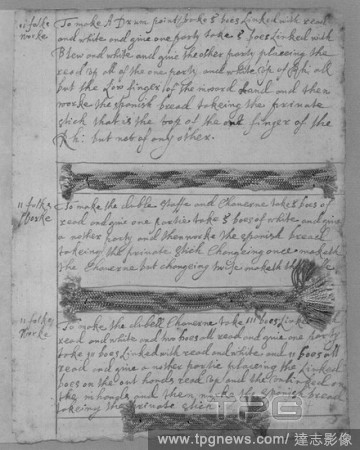 11 folks worke
To make A Drum point: toke 3 boes Linked with read
and white and give one party toke 3 boes Linked with
Blew and white and give the other party placeing the
read up all of the one party and white up of Rhi all
but the Low finger of the hand and then
worke the spanish bread tokeing the privnate
stick that is the top of the one finger of the
R hi: but not of any other.
11 folks Worke
To make the duble and Cheverne take 5 boes of
read and give one partie toke 5 boes of white and give
a nother party and then worke the spanish bread
tokeing the privnate stick Changeing once maketh
the Cheverne but changeing twise maketh the
11 folks Worke
To make the dubell Cheverne toke boes Linked
read and white and two boes all read and give one party
toke boes Linked with read and white and boes all
read and give a nother partie placeing the Linked
boes on the out hands read up and the on
the and then make the spanish bread
tokeing the privnate stick
EPICS
www.tpgnews.com/ 達志影像